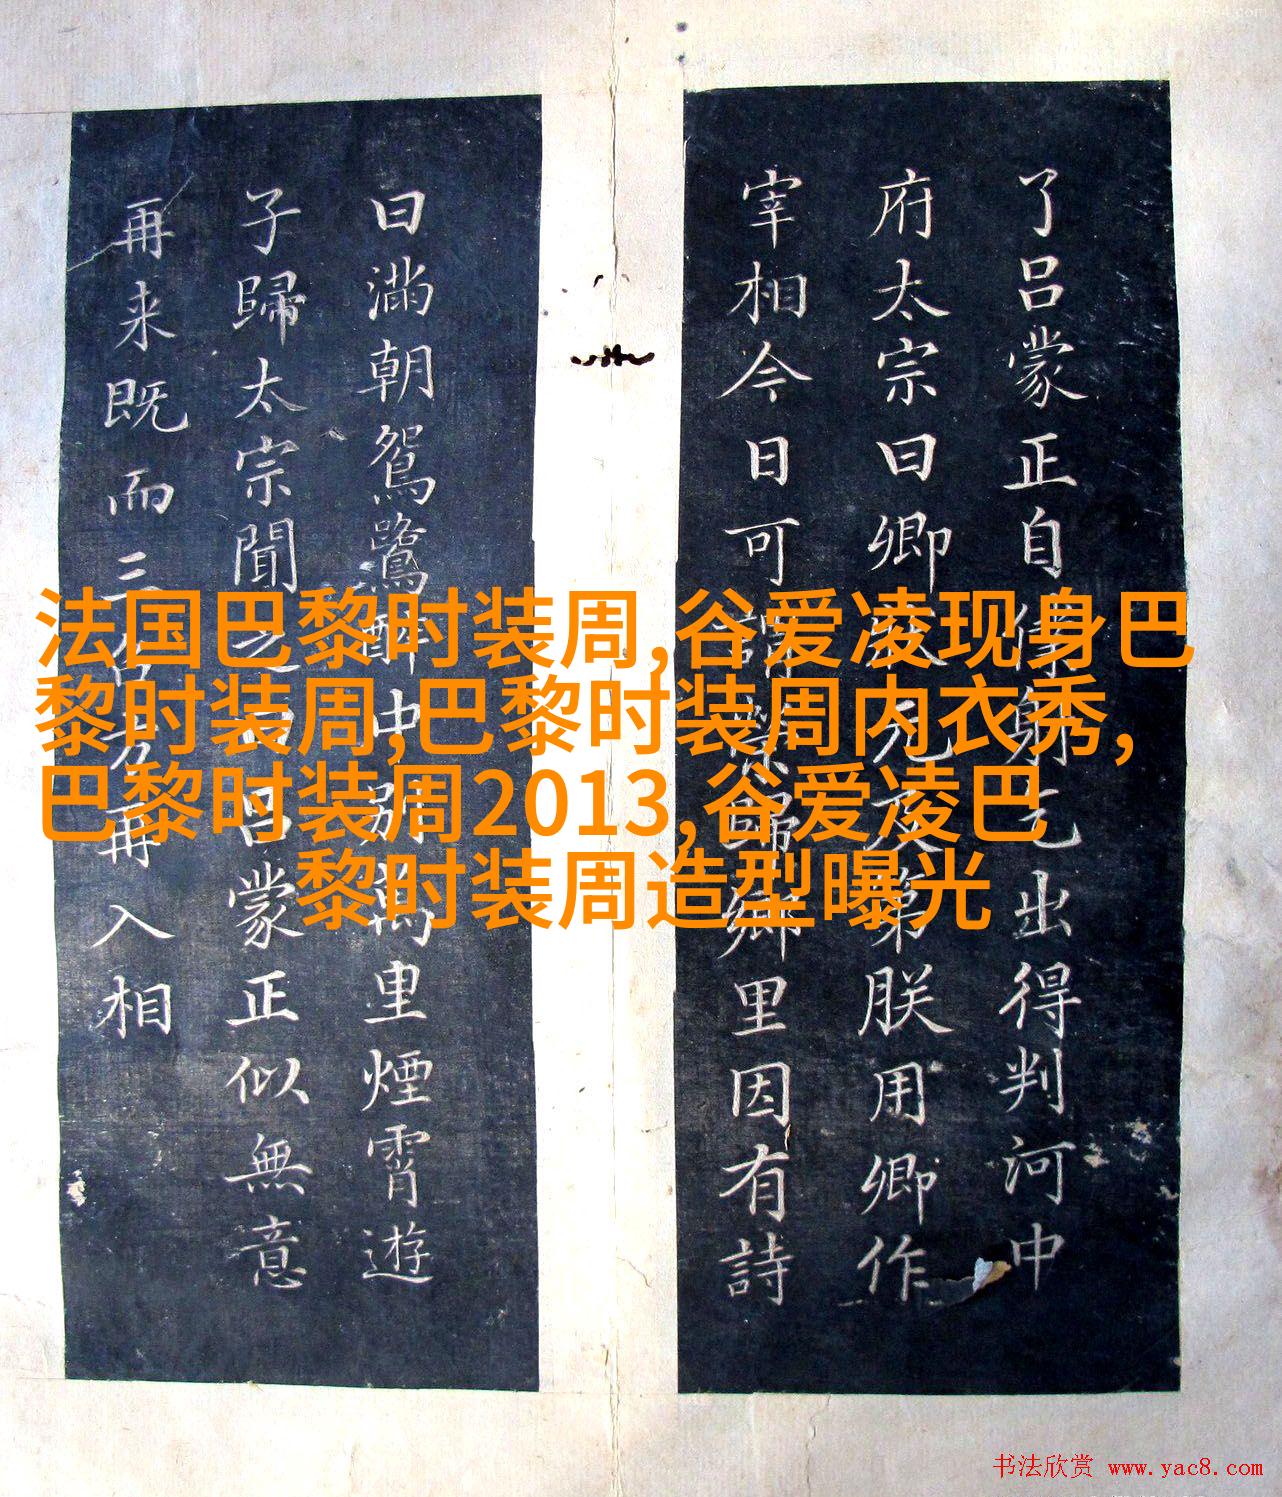 了吕蒙正自
出得判河中
府太宗曰卿
弟朕用卿作
宰相今日可
歸鄉里因有詩
曰满朝鴛鷺醉中
里煙霄遊
子歸太宗聞之
蒙正似無意
再来既而三
再入相
法国巴黎时装周,谷爱凌现身巴
黎时装周,巴黎时装周内衣秀,
巴黎时装周2013,谷爱凌巴
黎时装周造型曝光
书法欣赏 www.yac8.com